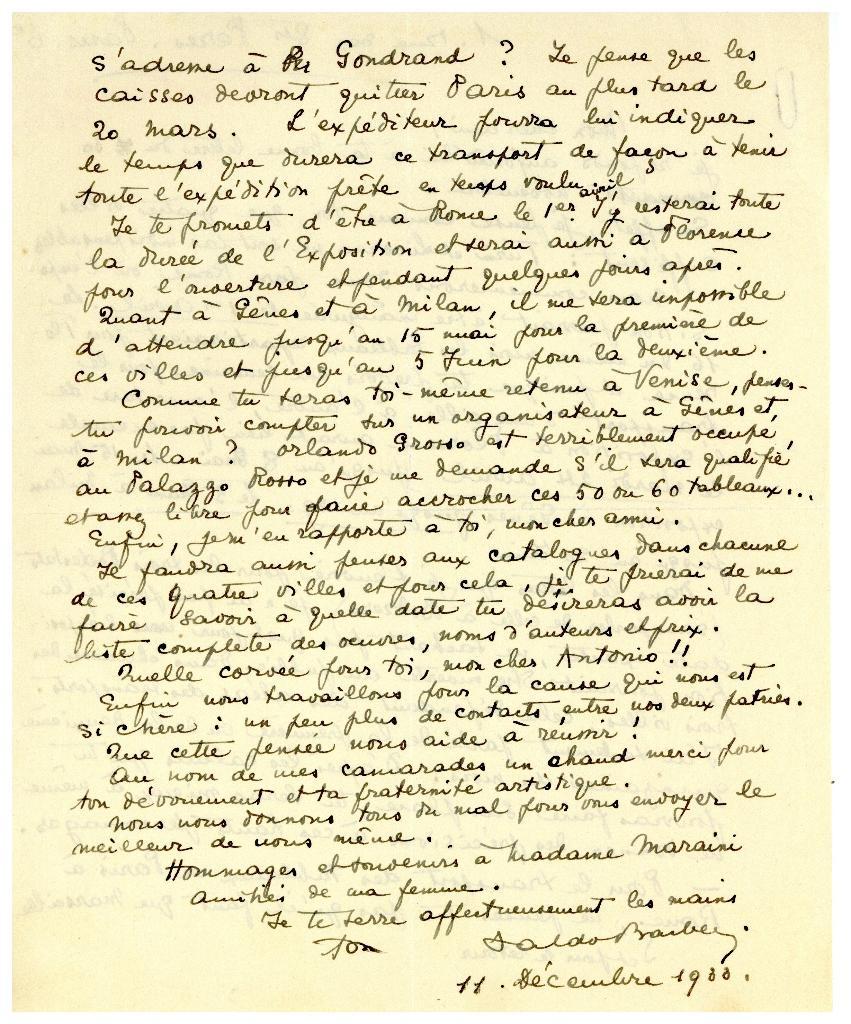 s'adresse à Gondrand ? Je pense que les
caisses devront quitter Paris au plus tard le
20 mars. L'expéditeur pourra lui indiquer
le temps que durera ce transport de façon à tenir
toute l'expédition prête en temps voulu.
Je te promets d'être à Rome le 1er avril J'y resterai toute
la durée de l'Exposition et serai aussi à Florence
pour l'ouverture et pendant quelques jours après.
Quant à Gênes et à Milan, il me sera impossible
d'attendre jusqu'au 15 mai pour la première de
ces villes et jusqu'au 5 Juin pour la deuxième.
Comme tu seras toi-même retenu à Venise, penses-
tu pouvoir compter sur un organisateur à Gênes et,
à Milan ? Orlando Grosso est terriblement occupé,
au Palazzo Rosso et je me demande s'il sera qualifié
et assez libre pour faire accrocher ces 50 ou 60 tableaux...
Enfin, je m'en rapporte à toi, mon cher ami.
Il faudra aussi penser aux catalogues dans chacune
de ces quatre villes et pour cela, je te prierai de me
faire savoir à quelle date tu désireras avoir la
liste complète des oeuvres, noms d'auteurs et prix.
Quelle corvée pour toi, mon cher Antonio !!
Enfin nous travaillons pour la cause qui nous est
si chère : un peu plus de contacts entre nos deux patries.
Que cette pensée nous aide à réussir !
Au nom de mes camarades un chaud merci pour
ton dévouement et ta fraternité artistique.
Nous nous donnons tous du mal pour vous envoyer le
meilleur de nous même.
Hommages et souvenirs à Madame Maraini
amitiés de ma femme.
Je te serre affectueusement les mains
ton Laldo Barbey.
11. Décembre 1933.